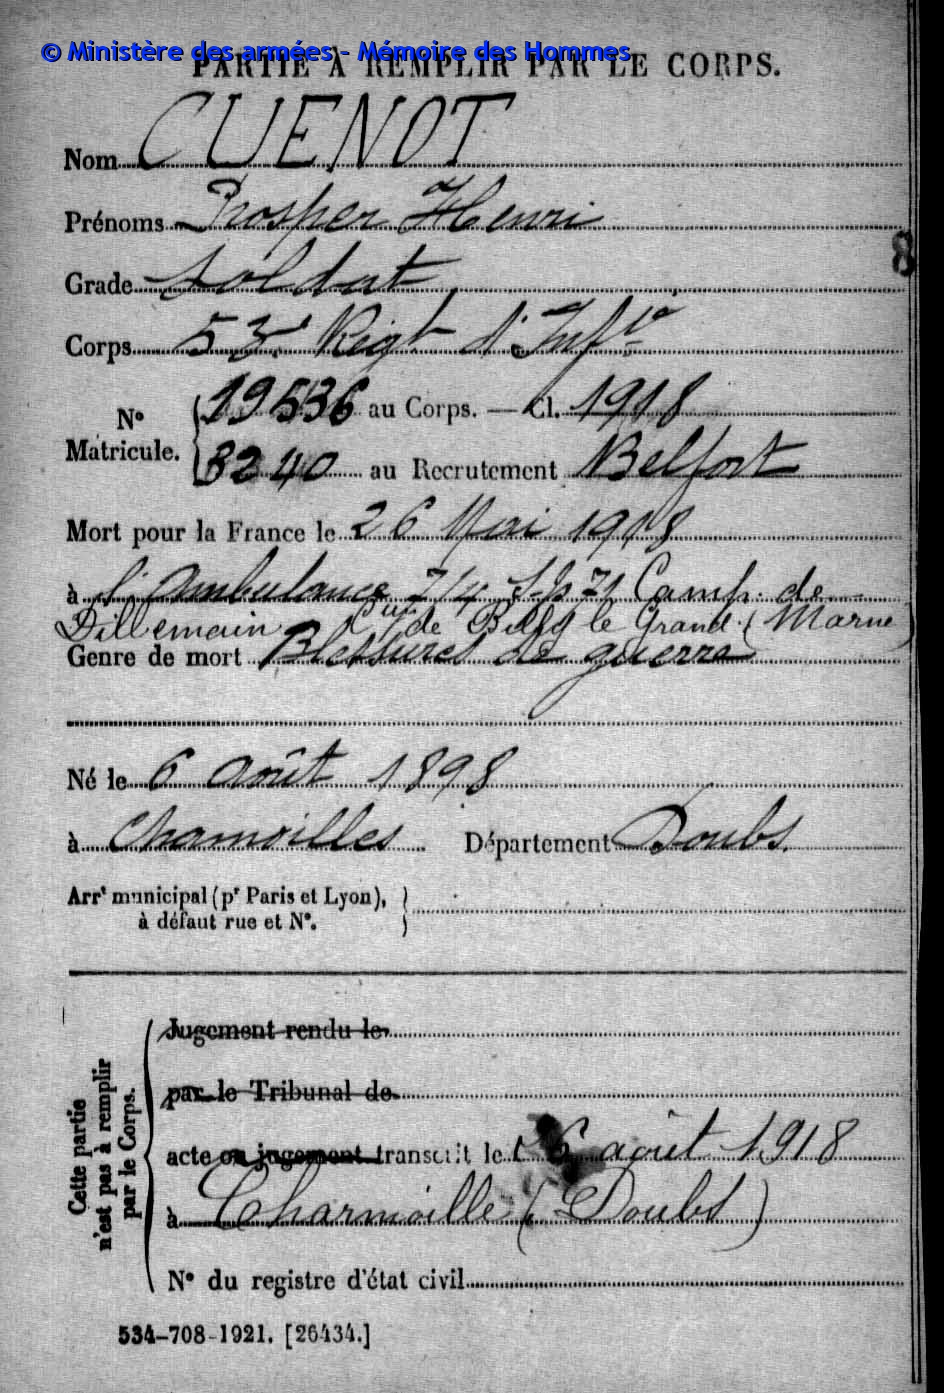 © Ministère des armées - Mémoire des Hommes
PARTIE À REMPLIR PAR LE CORPS.
Nom CUENOT
Prénoms Prosper Henri
Grade Soldat
8
Corps 53e Régt d'Infie
No Matricule. { 19536 au Corps. — Cl. 1918
3240 au Recrutement Belfort
Mort pour la France le 26 Mai 1918
à l'ambulance 7/4 S.P. 71 Camp. de
Dillemain de le Grand (Marne)
Genre de mort Blessures de guerre
Né le 6 août 1898
à Chamoilles Département Doubs.
Arrt municipal (pr Paris et Lyon),
à défaut rue et No.
Cette partie
n'est pas à remplir
par le Corps.
Jugement rendu le
par le Tribunal de
acte ou jugement transcrit le 6 août 1918
à Charmoille (Doubs)
No du registre d'état civil
534-708-1921. [26434.]